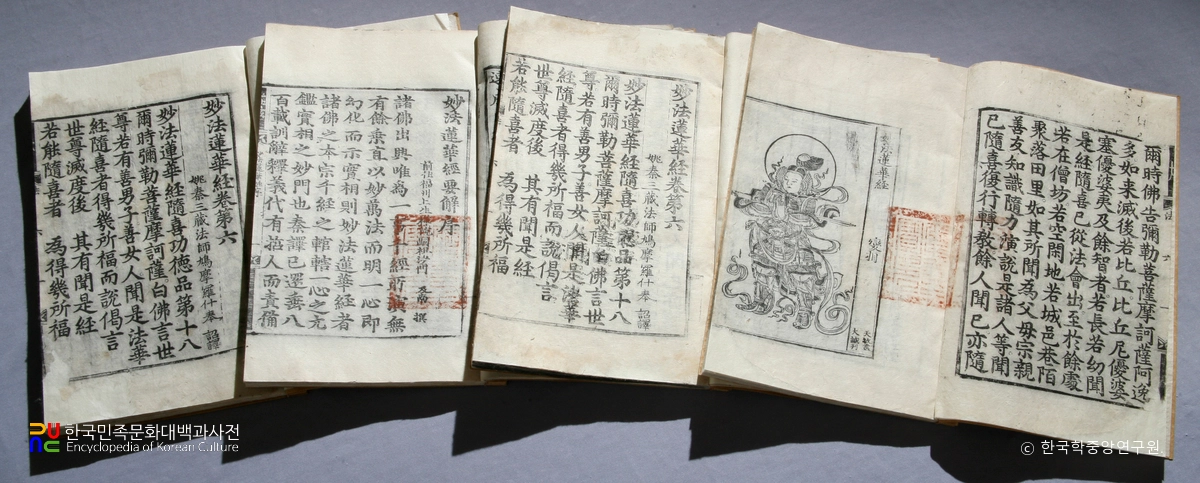 妙法蓮華經卷第六
姚秦三藏法師鳩摩羅什奉 詔譯
妙法蓮華經隨喜功德品第十八
爾時彌勒菩薩摩訶薩白佛言世
尊若有善男子善女人聞是法華
經隨喜者得幾所福而說偈言
世尊滅度後 其有聞是經
若能隨喜者 為得幾所福
妙法蓮華經要解序
前住福州上生禪院嗣祖沙門 撰
諸佛出興唯為一 千經所演無
有餘乘直以妙萬法而明一心即
幻化而示實相則妙法蓮華經者
諸佛之本宗千經之輨轄心之
鑑實相之妙門也秦譯已還垂八
百載訓解釋義代有 人而責備
妙法蓮華經卷第六
姚秦三藏法師鳩摩羅什奉 詔譯
妙法蓮華經隨喜功德品第十八
爾時彌勒菩薩摩訶薩白佛言世
尊若有善男子善女人聞是法華
經隨喜者得幾所福而說偈言
世尊滅度後 其有聞是經
若能隨喜者 為得幾所福
爾時佛告彌勒菩薩摩訶薩阿逸
多如来滅後若比丘比丘尼優婆
塞優婆夷及餘智者若長若幼聞
是經隨喜已從法會出至於餘處
若在僧坊若空閑地若城邑巷陌
聚落田里如其所聞為父母宗親
善友知識隨力演說是諸人等聞
已隨喜復行轉教餘人聞已亦隨
한국민족문화대백과사전
Encyclopedia of Korean Culture
ⓒ 한국학중앙연구원